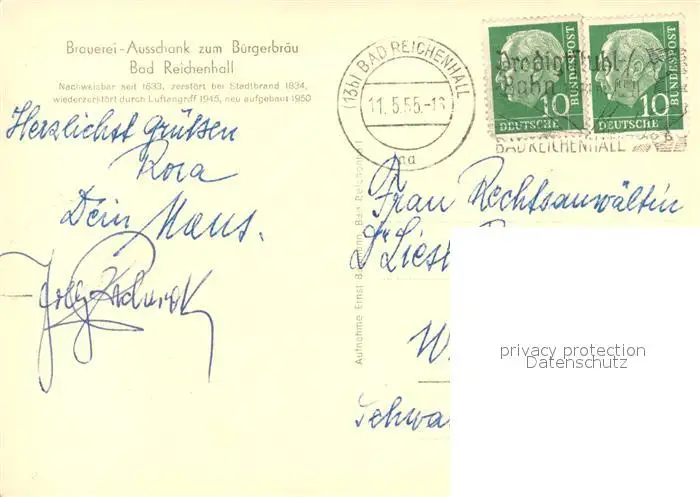 Brauerei-Ausschank zum Bürgerbräu
Bad Reichenhall
Nachweisbar seit 1633, zerstört bei Stadtbrand 1834,
wiederzerstört durch Luftangriff 1945, neu aufgebaut 1950
(13b) BAD REICHENHALL
11.5.55.-16
10 10
DEUTSCHE BUNDESPOST
DEUTSCHE BUNDESPOST
Predigtstuhl
Bahn
BAD REICHENHALL
Herzlichst grüßen
Rosa
Dein Hans.
Frau Rechtsanwältin
Dr Liesl
W
Schwa
Aufnahme Ernst Bad Reichenhall
privacy protection
Datenschutz